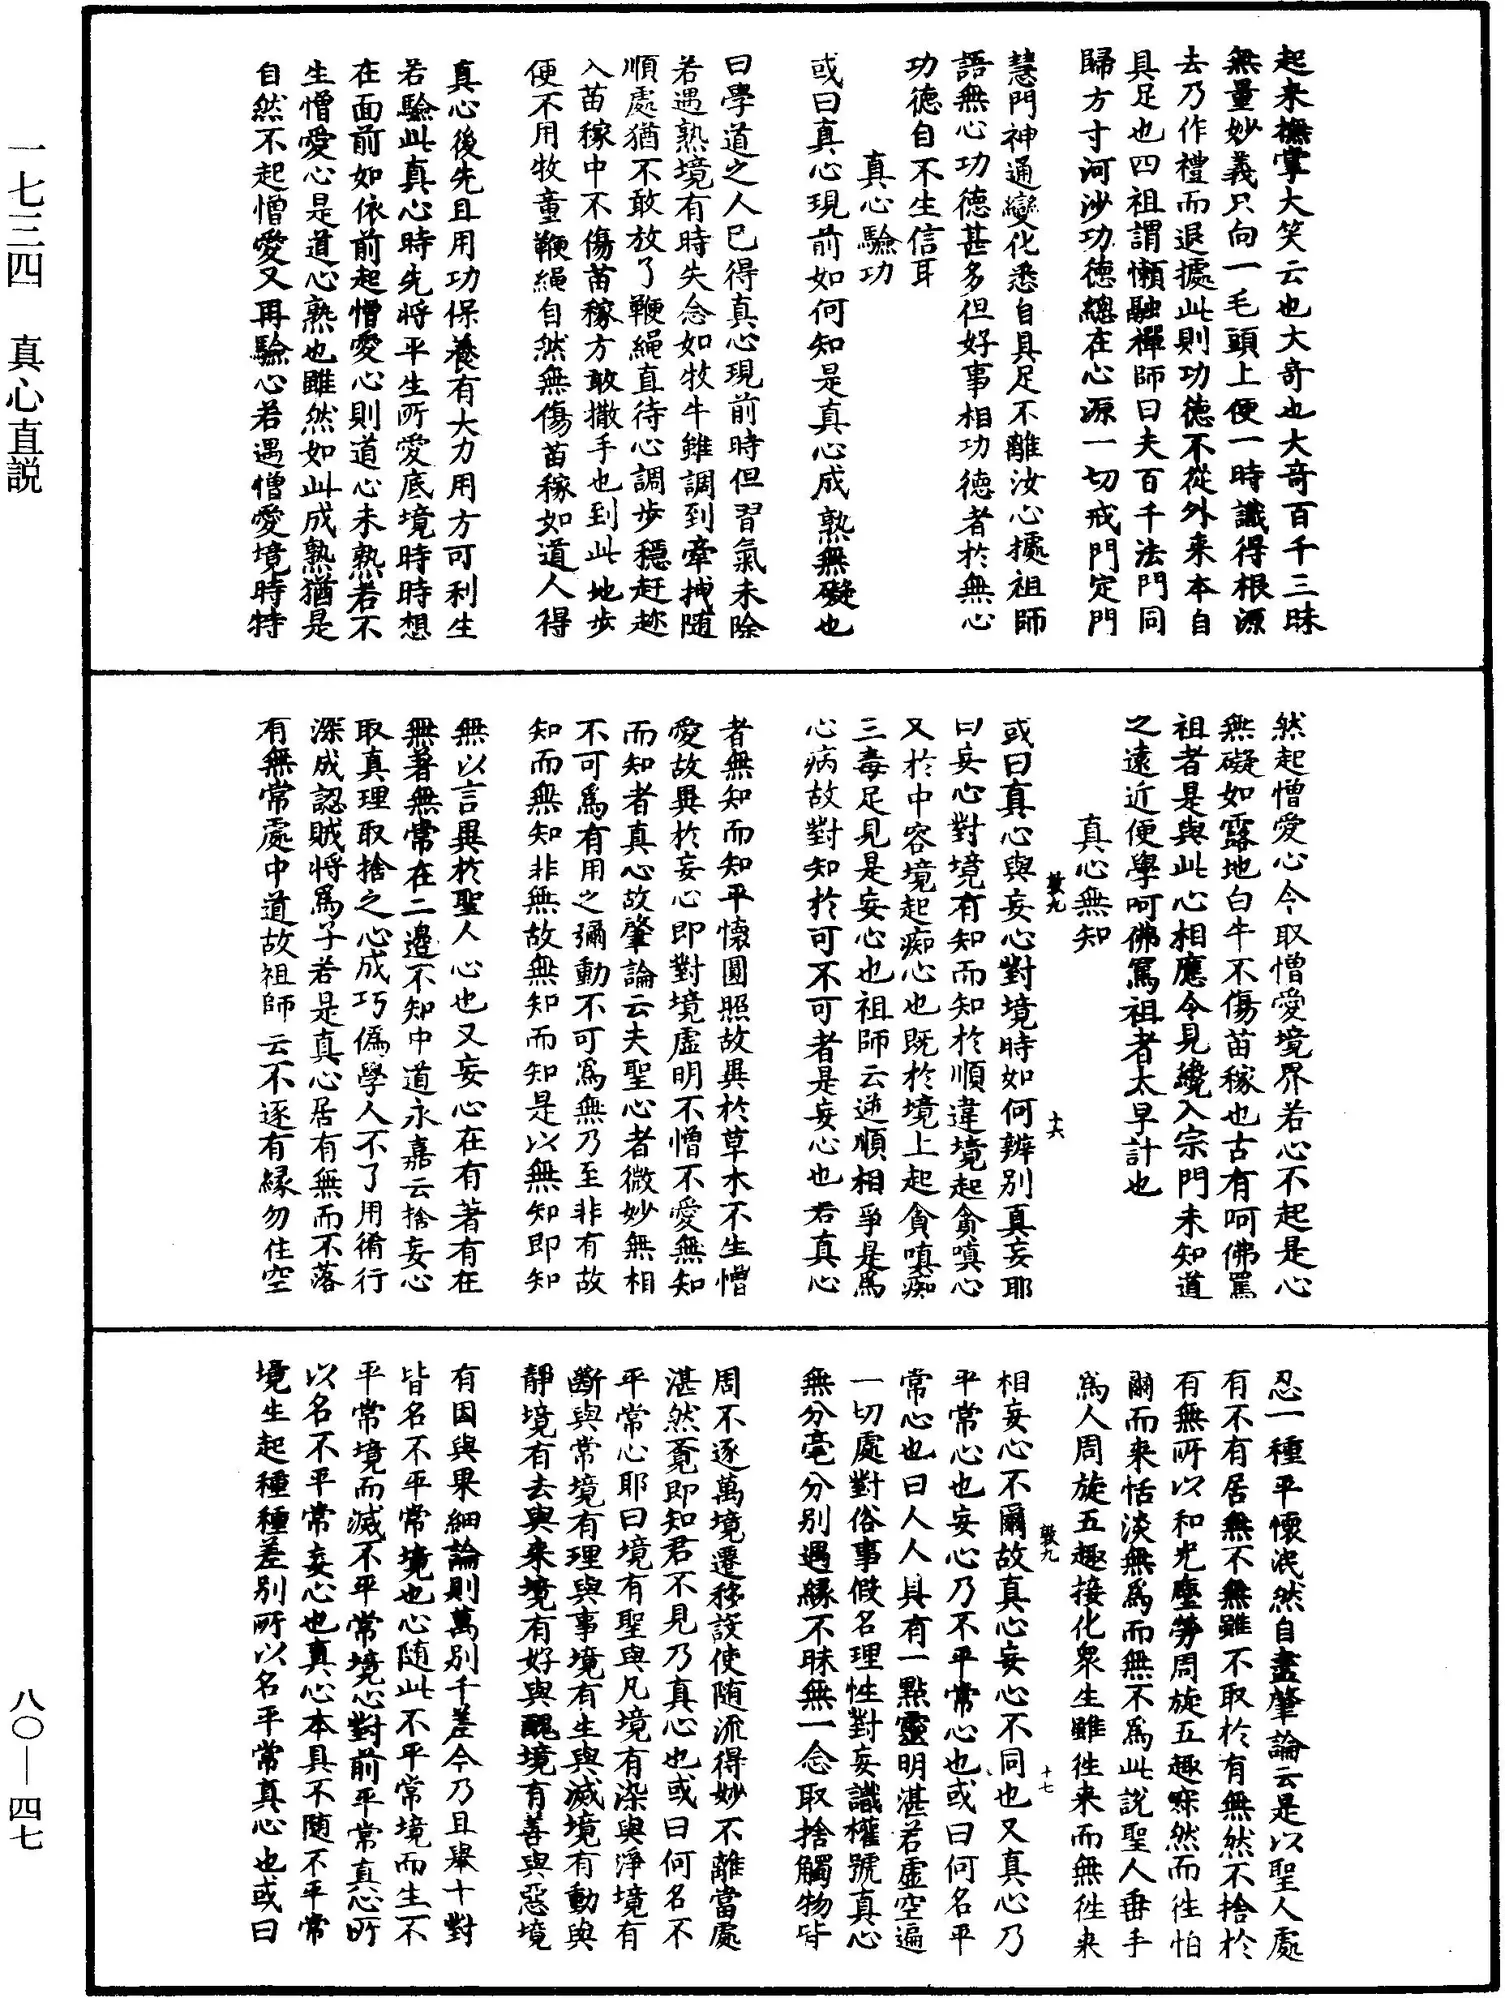 一七三四　真心直説
八〇—四七
起来撫掌大笑云也大奇也大奇百千三昧
無量妙義只向一毛頭上便一時識得根源
去乃作禮而退據此則功德不從外来本自
具足也四祖謂懶融禪師曰夫百千法門同
歸方寸河沙功德總在心源一切戒門定門
慧門神通變化悉自具足不離汝心據祖師
語無心功德甚多但好事相功德者於無心
功德自不生信耳
真心驗功
或曰真心現前如何知是真心成熟無礙也
曰學道之人已得真心現前時但習氣未除
若遇熟境有時失念如牧牛雖調到牽拽隨
順處猶不敢放了鞭繩直待心調步穩赶趂
入苗稼中不傷苗稼方敢撒手也到此地步
便不用牧童鞭繩自然無傷苗稼如道人得
真心後先且用功保養有大力用方可利生
若驗此真心時先將平生所愛底境時時想
在面前如依前起憎愛心則道心未熟若不
生憎愛心是道心熟也雖然如此成熟猶是
自然不起憎愛又再驗心若遇憎愛境時特
然起憎愛心令取憎愛境界若心不起是心
無礙如露地白牛不傷苗稼也古有呵佛罵
祖者是與此心相應今見纔入宗門未知道
之遠近便學呵佛罵祖者太早計也
真心無知
或曰真心與妄心對境時如何辨別真妄耶
曰妄心對境有知而知於順違境起貪嗔心
又於中容境起痴心也既於境上起貪嗔痴
三毒足見是妄心也祖師云逆順相爭是為
心病故對知於可不可者是妄心也若真心
者無知而知平懷圓照故異於草木不生憎
愛故異於妄心即對境虛明不憎不愛無知
而知者真心故肇論云夫聖心者微妙無相
不可為有用之彌動不可為無乃至非有故
知而無知非無故無知而知是以無知即知
無以言異於聖人心也又妄心在有著有在
無著無常在二邊不知中道永嘉云捨妄心
取真理取捨之心成巧偽學人不了用脩行
深成認賊將為子若是真心居有無而不落
有無常處中道故祖師云不逐有緣勿住空
忍一種平懷泯然自盡肇論云是以聖人處
有不有居無不無雖不取於有無然不捨於
有無所以和光塵勞周旋五趣寂然而往怕
爾而来恬淡無為而無不為此說聖人垂手
為人周旋五趣接化衆生雖往来而無往来
相妄心不爾故真心妄心不同也又真心乃
平常心也妄心乃不平常心也或曰何名平
常心也曰人人具有一點靈明湛若虛空遍
一切處對俗事假名理性對妄識權號真心
無分毫分別遇緣不昧無一念取捨觸物皆
周不逐萬境遷移設使隨流得妙不離當處
湛然覔即知君不見乃真心也或曰何名不
平常心耶曰境有聖與凡境有染與淨境有
斷與常境有理與事境有生與滅境有動與
靜境有去與来境有好與醜境有善與惡境
有因與果細論則萬別千差今乃且舉十對
皆名不平常境也心隨此不平常境而生不
平常境而滅不平常境心對前平常真心所
以名不平常妄心也真心本具不隨不平常
境生起種種差別所以名平常真心也或曰
敷九
十六
敷九
十七